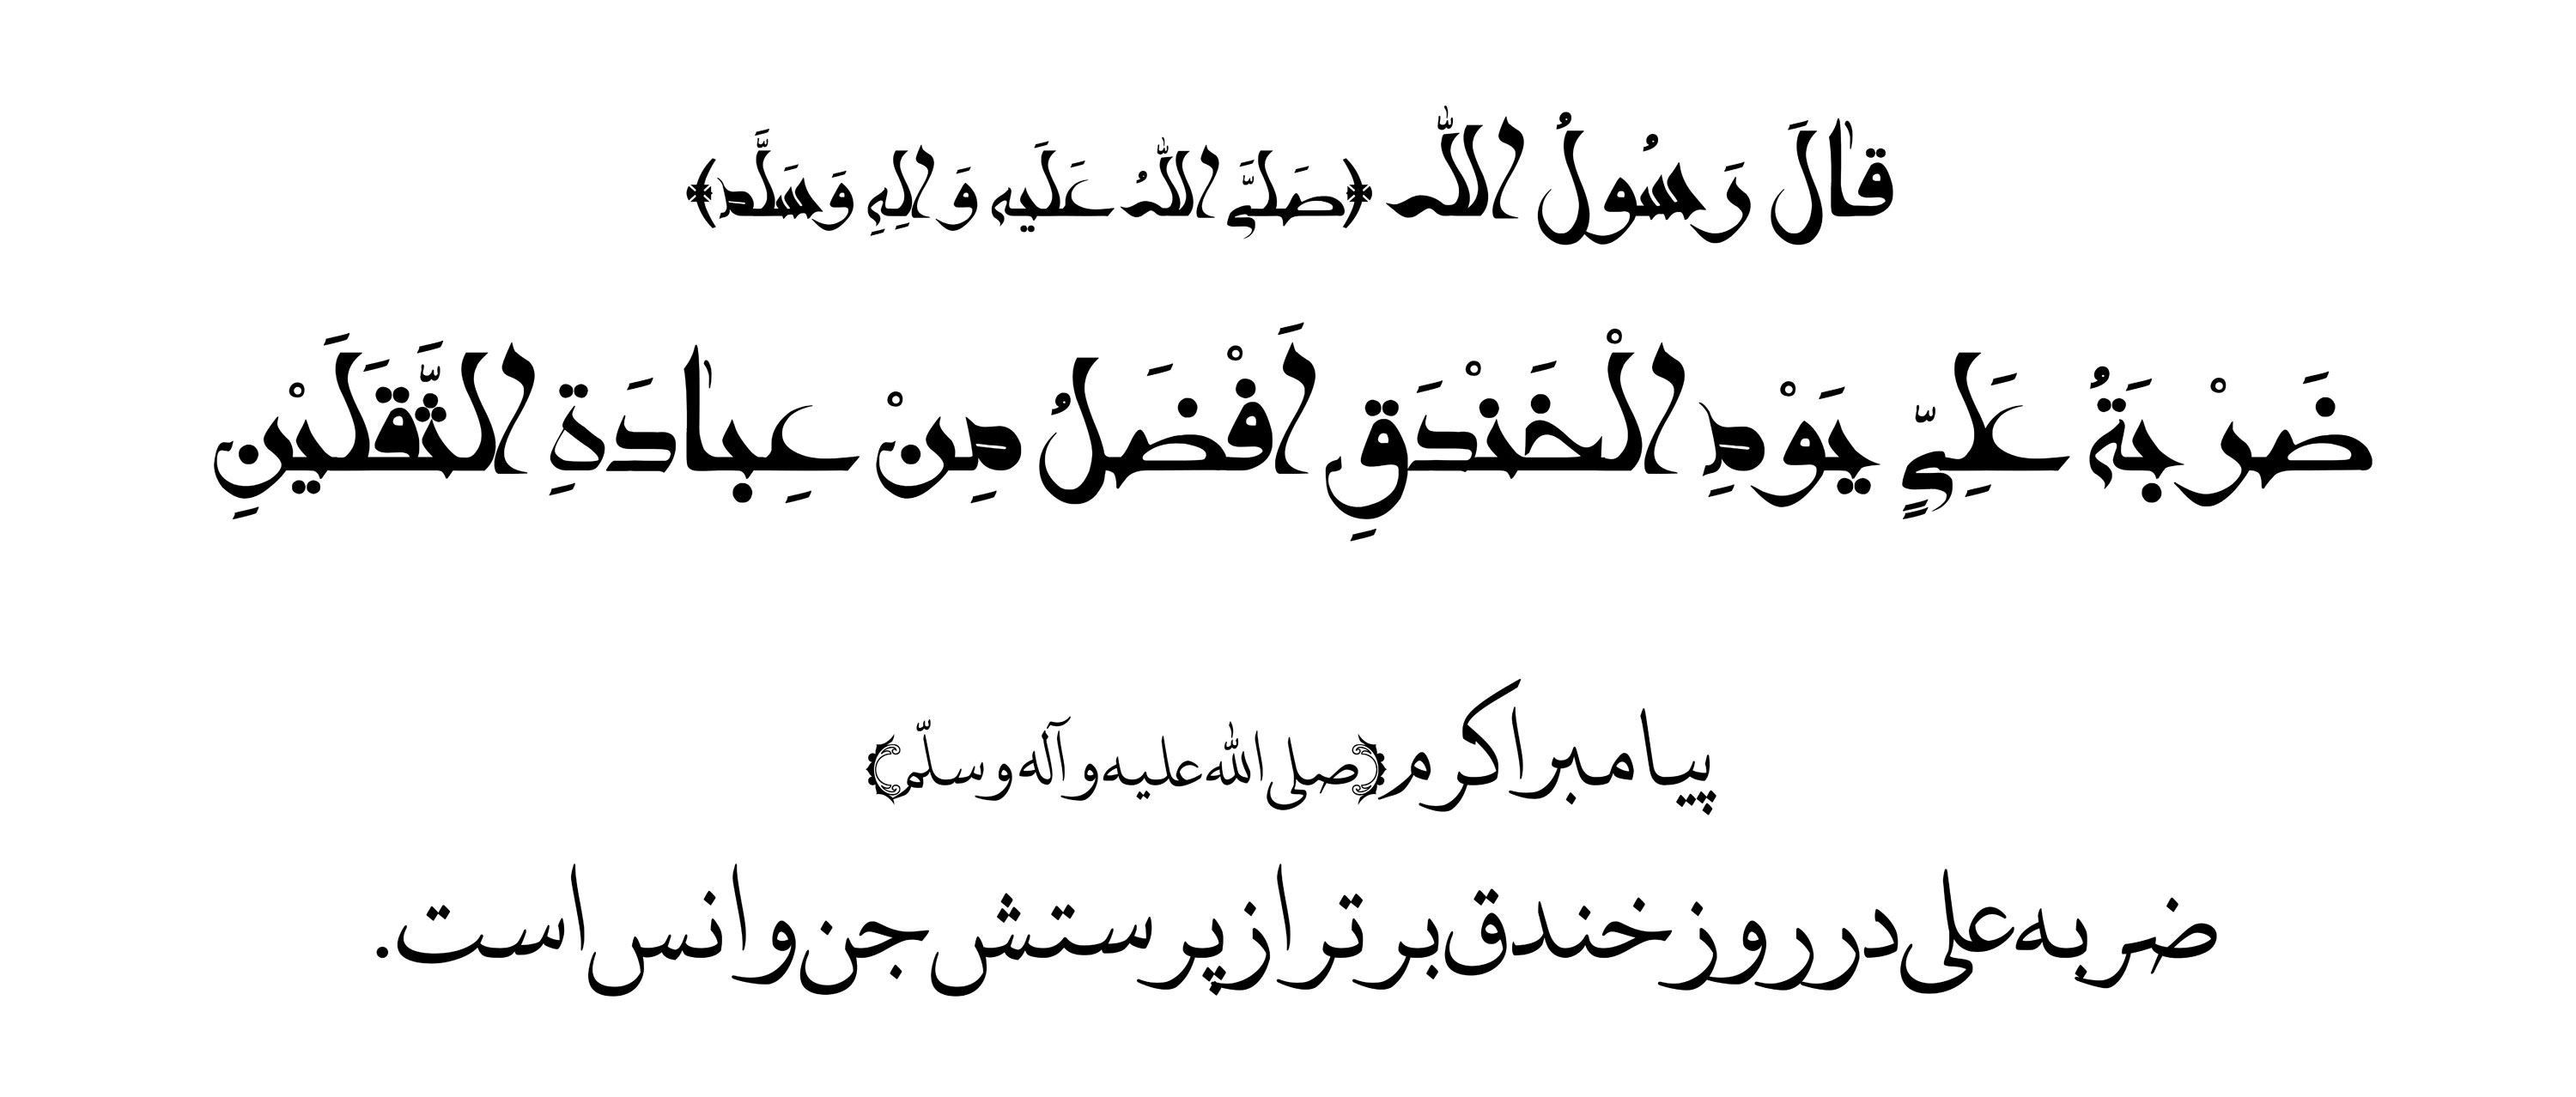 قالَ رَسُولُ اللّٰه (صَلَّیَ اللّٰهُ عَلَیه وَ الِهِ وَسَلَّم)
ضَرْبَةُ عَلِیٍّ یَوْمِ الْخَنْدَقِ اَفْضَلُ مِنْ عِبادَةِ الثَّقَلَیْنِ
پیامبر اکرم (صلی الله علیه و آله و سلّم)
ضربه علی در روز خندق برتر از پرستش جن و انس است.